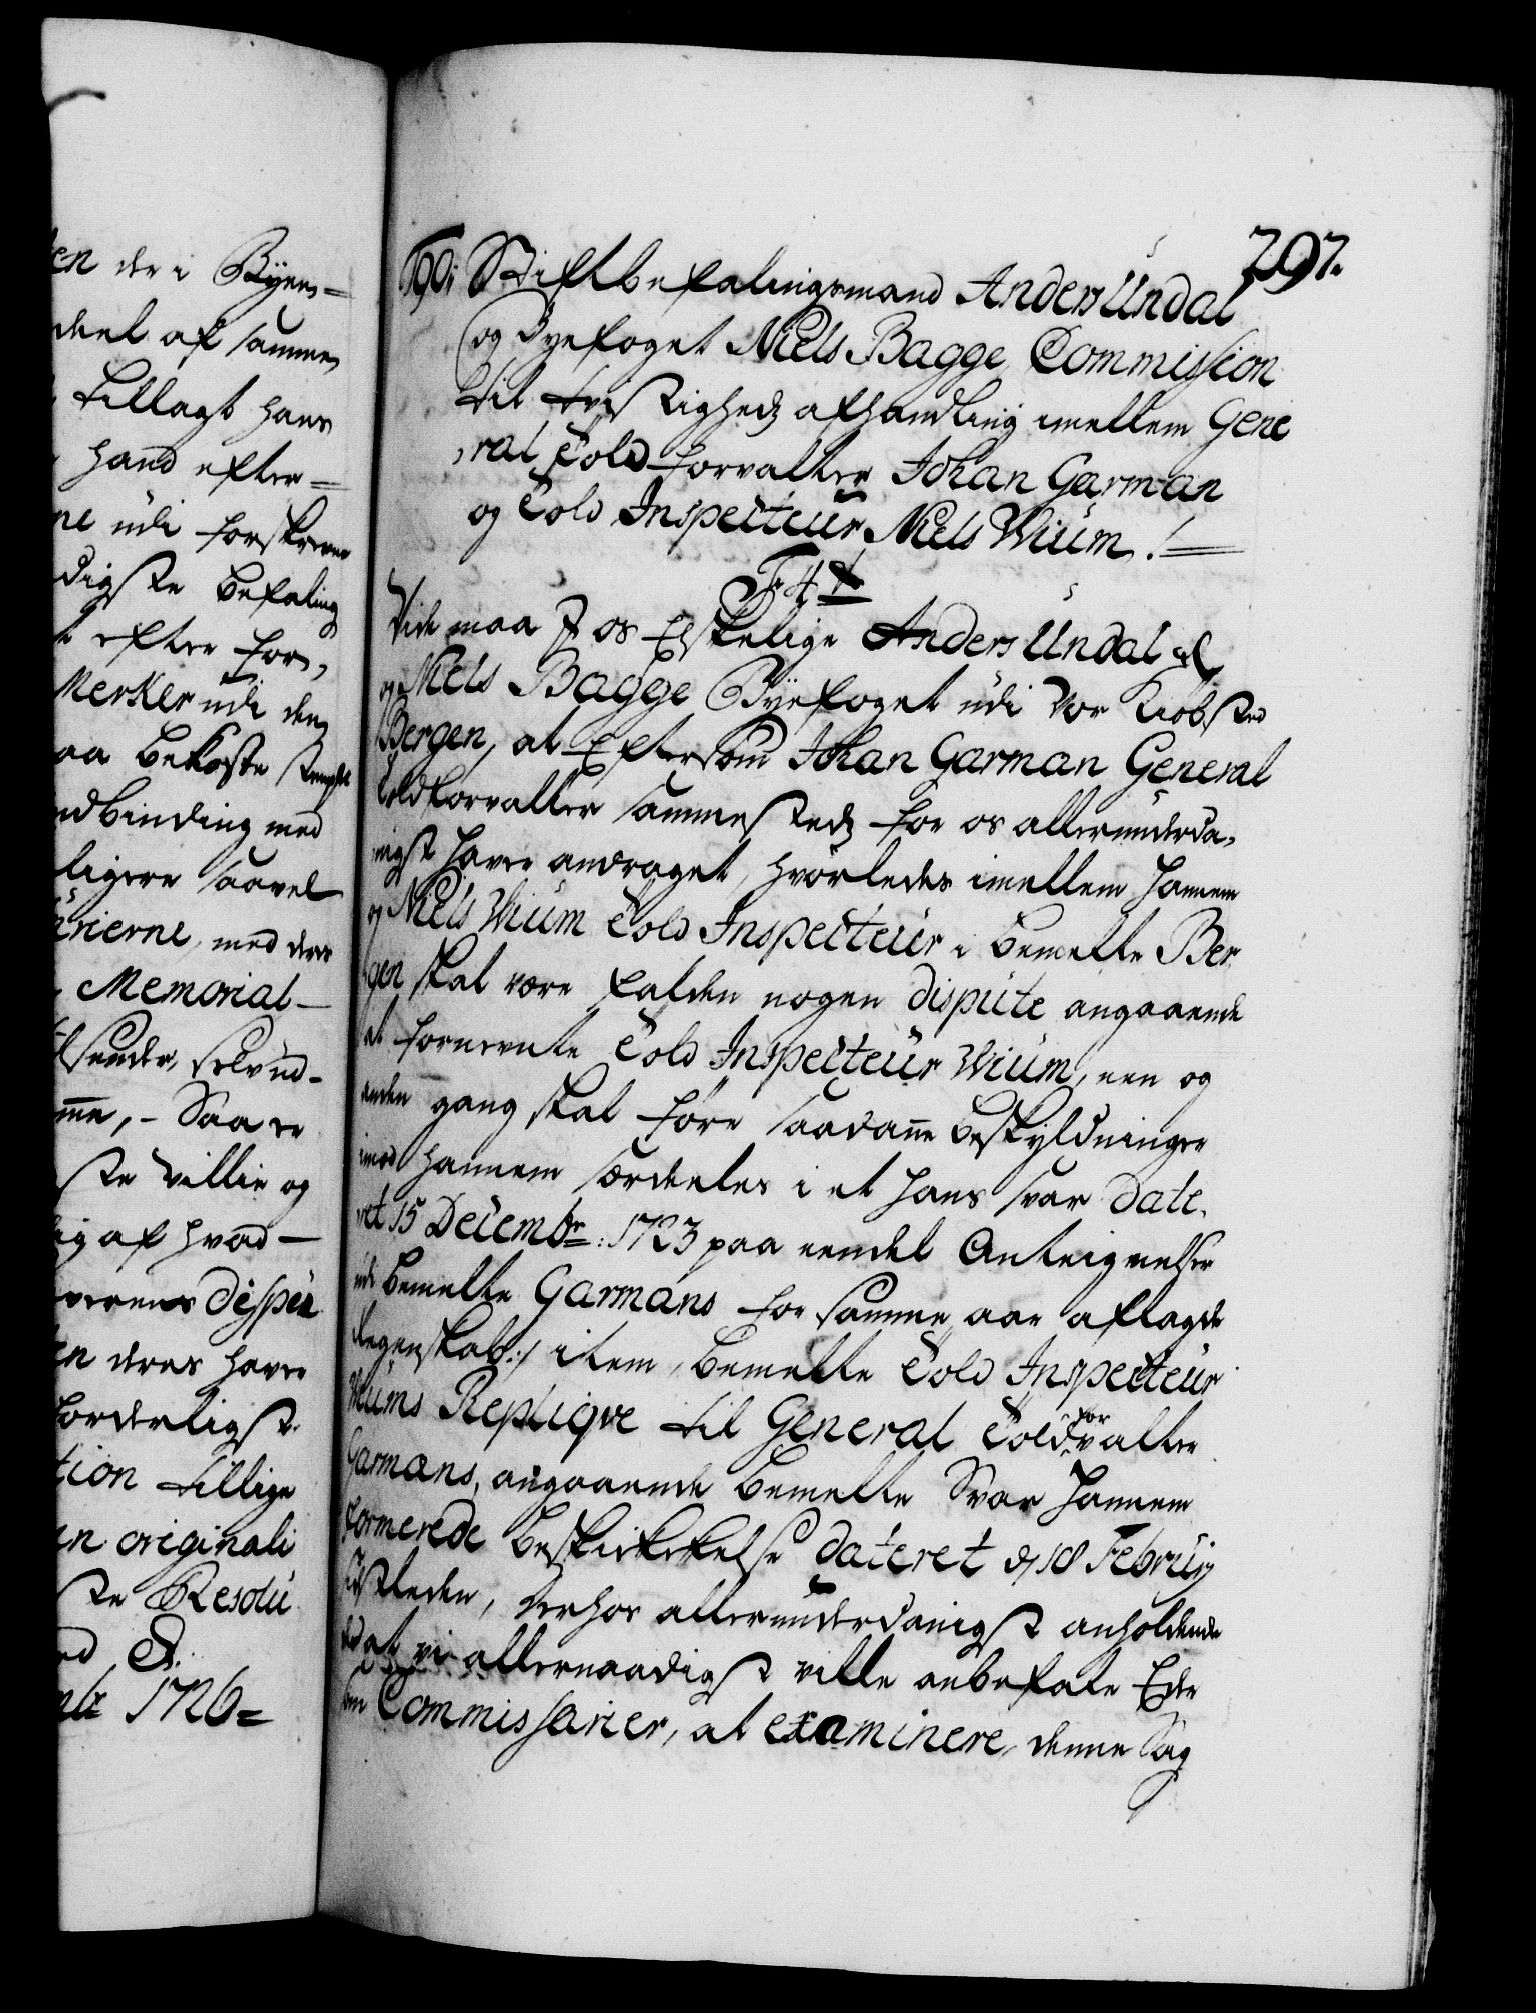 en der i Byens=
deel af samme
tillagt hans
hand efter=
ne udi forskrevne
digste befaling
t efter for,
Merker udi den
aa bekoste stemplet
ndbinding med
ligere saavel
ärierne, med deres
Memorial-
sender, selv und-
me,- Saa er
ste villie og
ig af hvad-
verens dispen
en deres haver
forderligst
tion tillige
in originali
ste Resolu
nd &.
mbr 1726=
797.
190: Stiftbefalingsmand Anders Undal
og Byefoget Niels Bagge Commission
til tvistigheds afhandling imellem Gene
,ral Told forvalter Johan Garman
og Told Inspecteur Niels Wium.!
Fr: 4t
Vide maa I os Elskelige Anders Undal &
og Niels Bagge Byefoget udi Vor Kiøbsted
Bergen, at Eftersom Johan Garman General
Toldforvalter sammesteds for os allerunderda,
nigst haver andraget, hvorledes imellem hannem
og Niels Wium Told Inspecteur i bemelte Ber
gen skal være falden nogen dispute angaaende
at fornevnte Told Inspecteur Wium, een og
anden gang skal føre saadanne beskyldninger
imod hannem særdeles i et hans svar date,
ret 15 Decembr: 1723 paa eendel Antegnelser
udi bemelte Garmans for samme aar aflagde
Regenskab:/ item, bemelte Told Inspecteur
Wiums Replique til General Toldforvalter
Garmans, angaaende bemelte Svar hannem
formerede beskickelse dateret d. 18 Februarij
sidstleden, derhos allerunderdanigst anholdende
at vi allernaadigst ville anbefale Eder
som Commissarier, at examinere, denne Sag